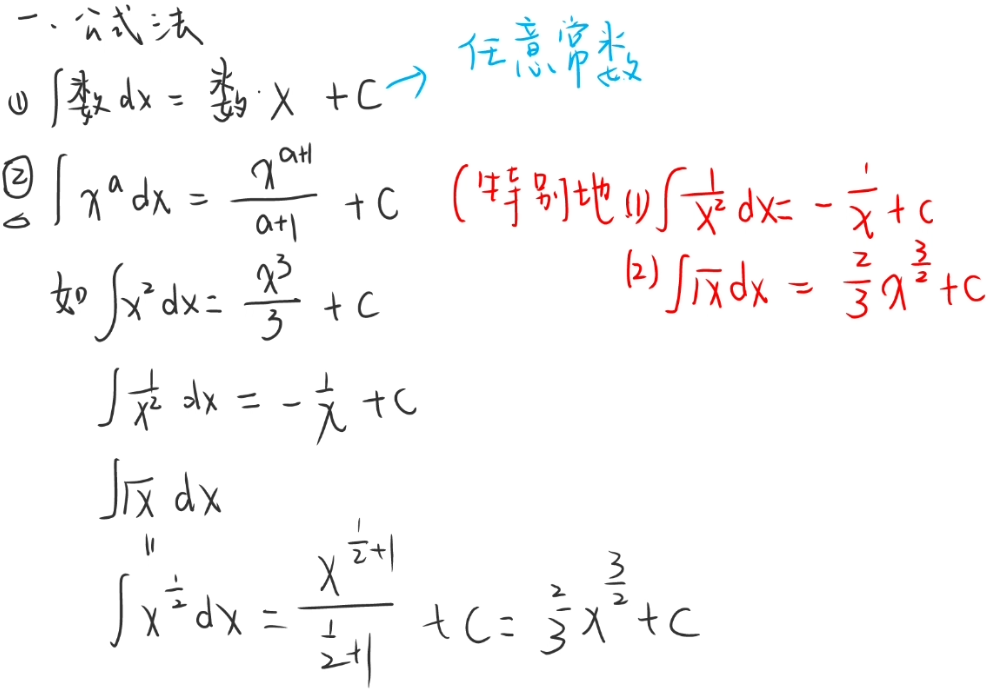 一、公式法
① ∫数dx = 数·x + C → 任意常数
② ∫x^a dx = x^(a+1)/(a+1) + C (特别地 (1) ∫1/x² dx = -1/x + C
(2) ∫√x dx = 2/3 x^(3/2) + C
如 ∫x² dx = x³/3 + C
∫1/x² dx = -1/x + C
∫√x dx
=
∫x^(1/2) dx = x^(1/2+1)/(1/2+1) + C = 2/3 x^(3/2) + C